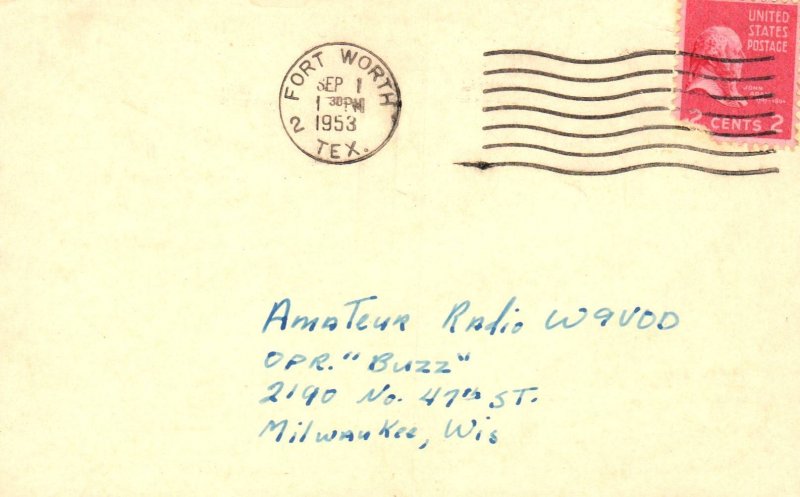 UNITED
STATES
POSTAGE
JOHN
2 CENTS 2
FORT WORTH
SEP 1
1 30PM
1953
2
TEX.
Amateur Radio W9VOD
OPR. "Buzz"
2190 No. 47th ST.
Milwaukee, Wis